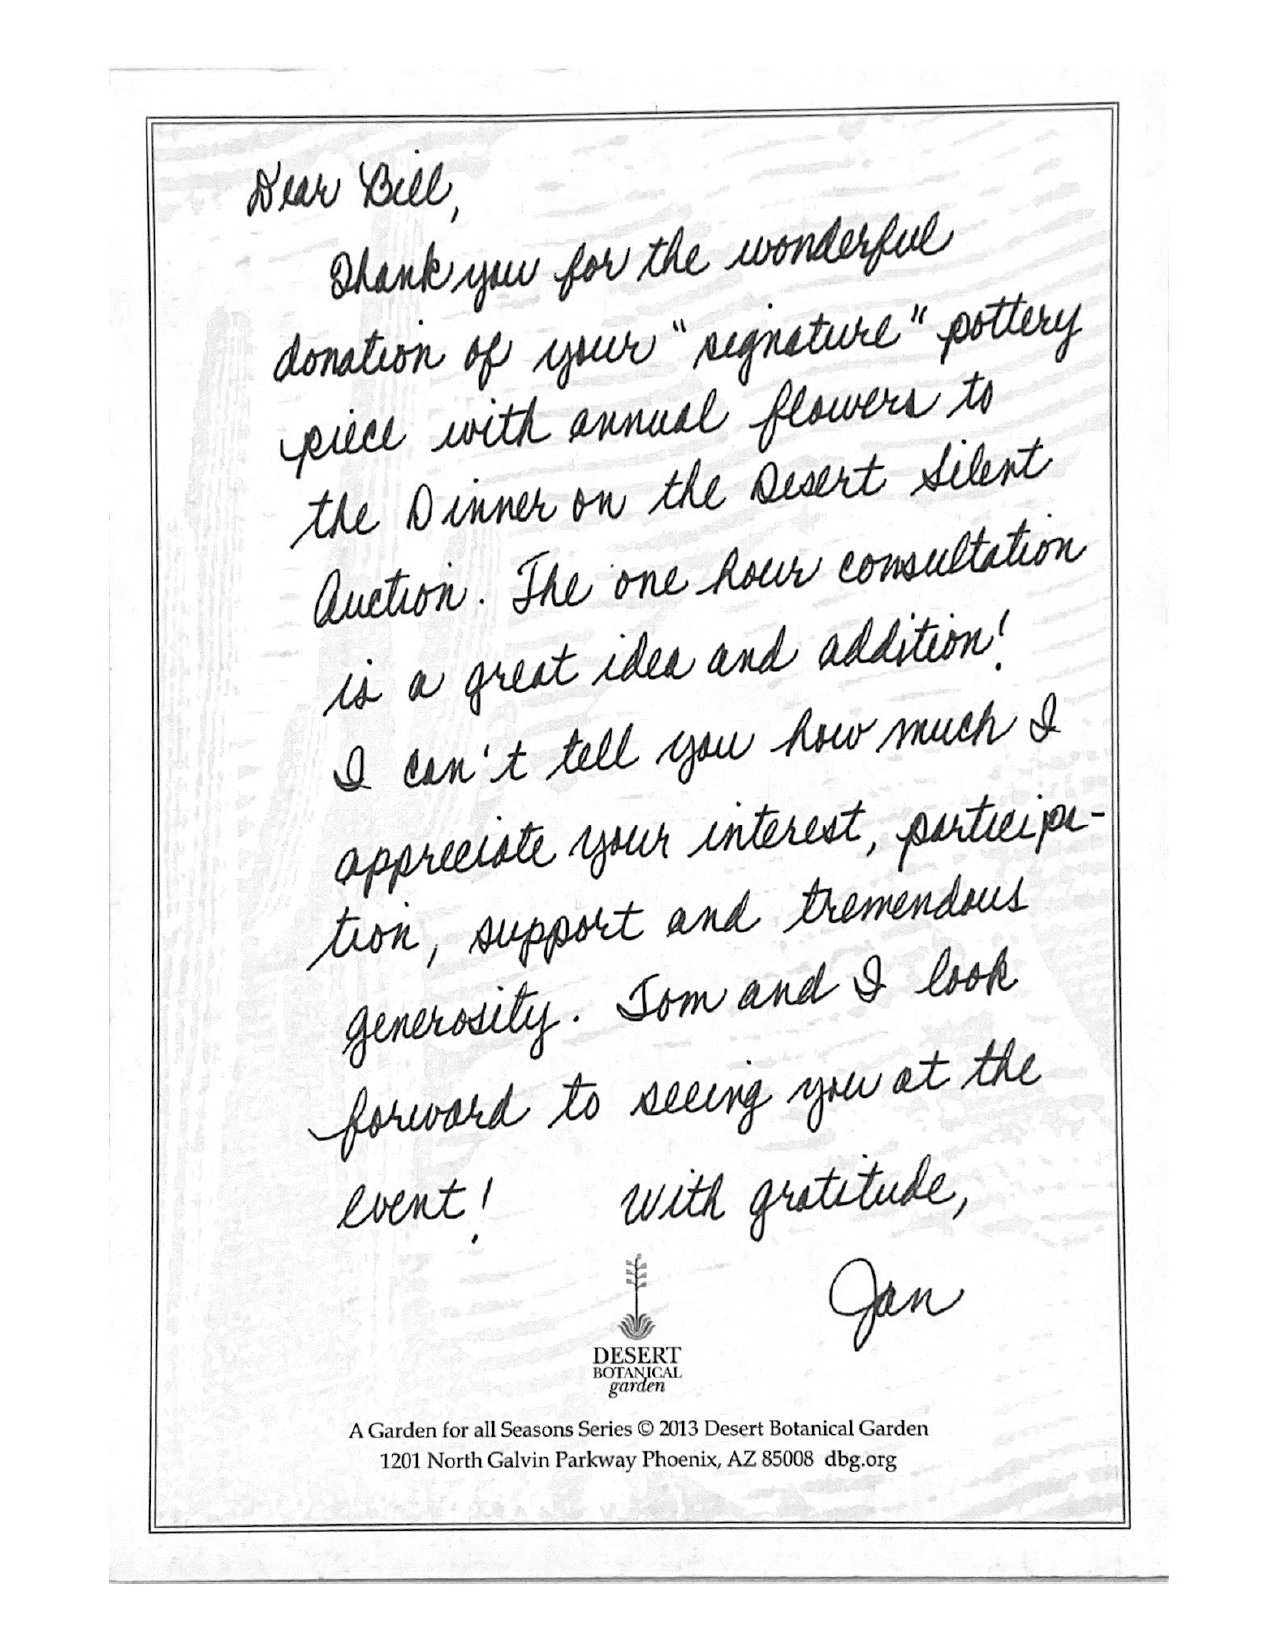 Dear Bill,
Thank you for the wonderful
donation of your "signature" pottery
piece with annual flowers to
the Dinner on the Desert Silent
Auction. The one hour consultation
is a great idea and addition!
I can't tell you how much I
appreciate your interest, participa-
tion, support and tremendous
generosity. Tom and I look
forward to seeing you at the
event! With gratitude,
Jan
DESERT
BOTANICAL
garden
A Garden for all Seasons Series © 2013 Desert Botanical Garden
1201 North Galvin Parkway Phoenix, AZ 85008 dbg.org